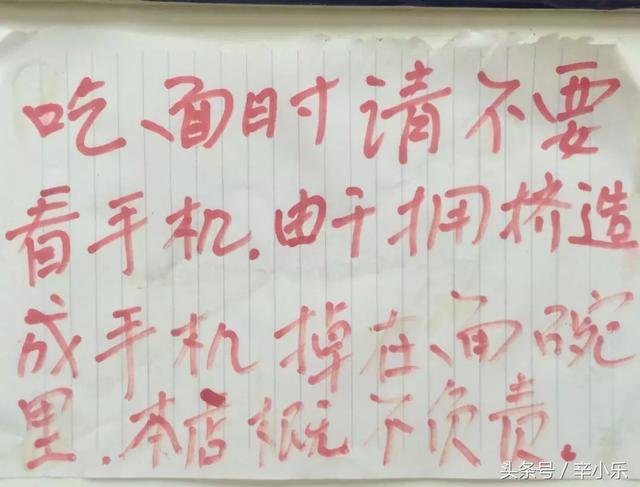 吃面时请不要
看手机.由于拥挤造
成手机掉在面碗
里.本店概不负责.
头条号／辛小乐